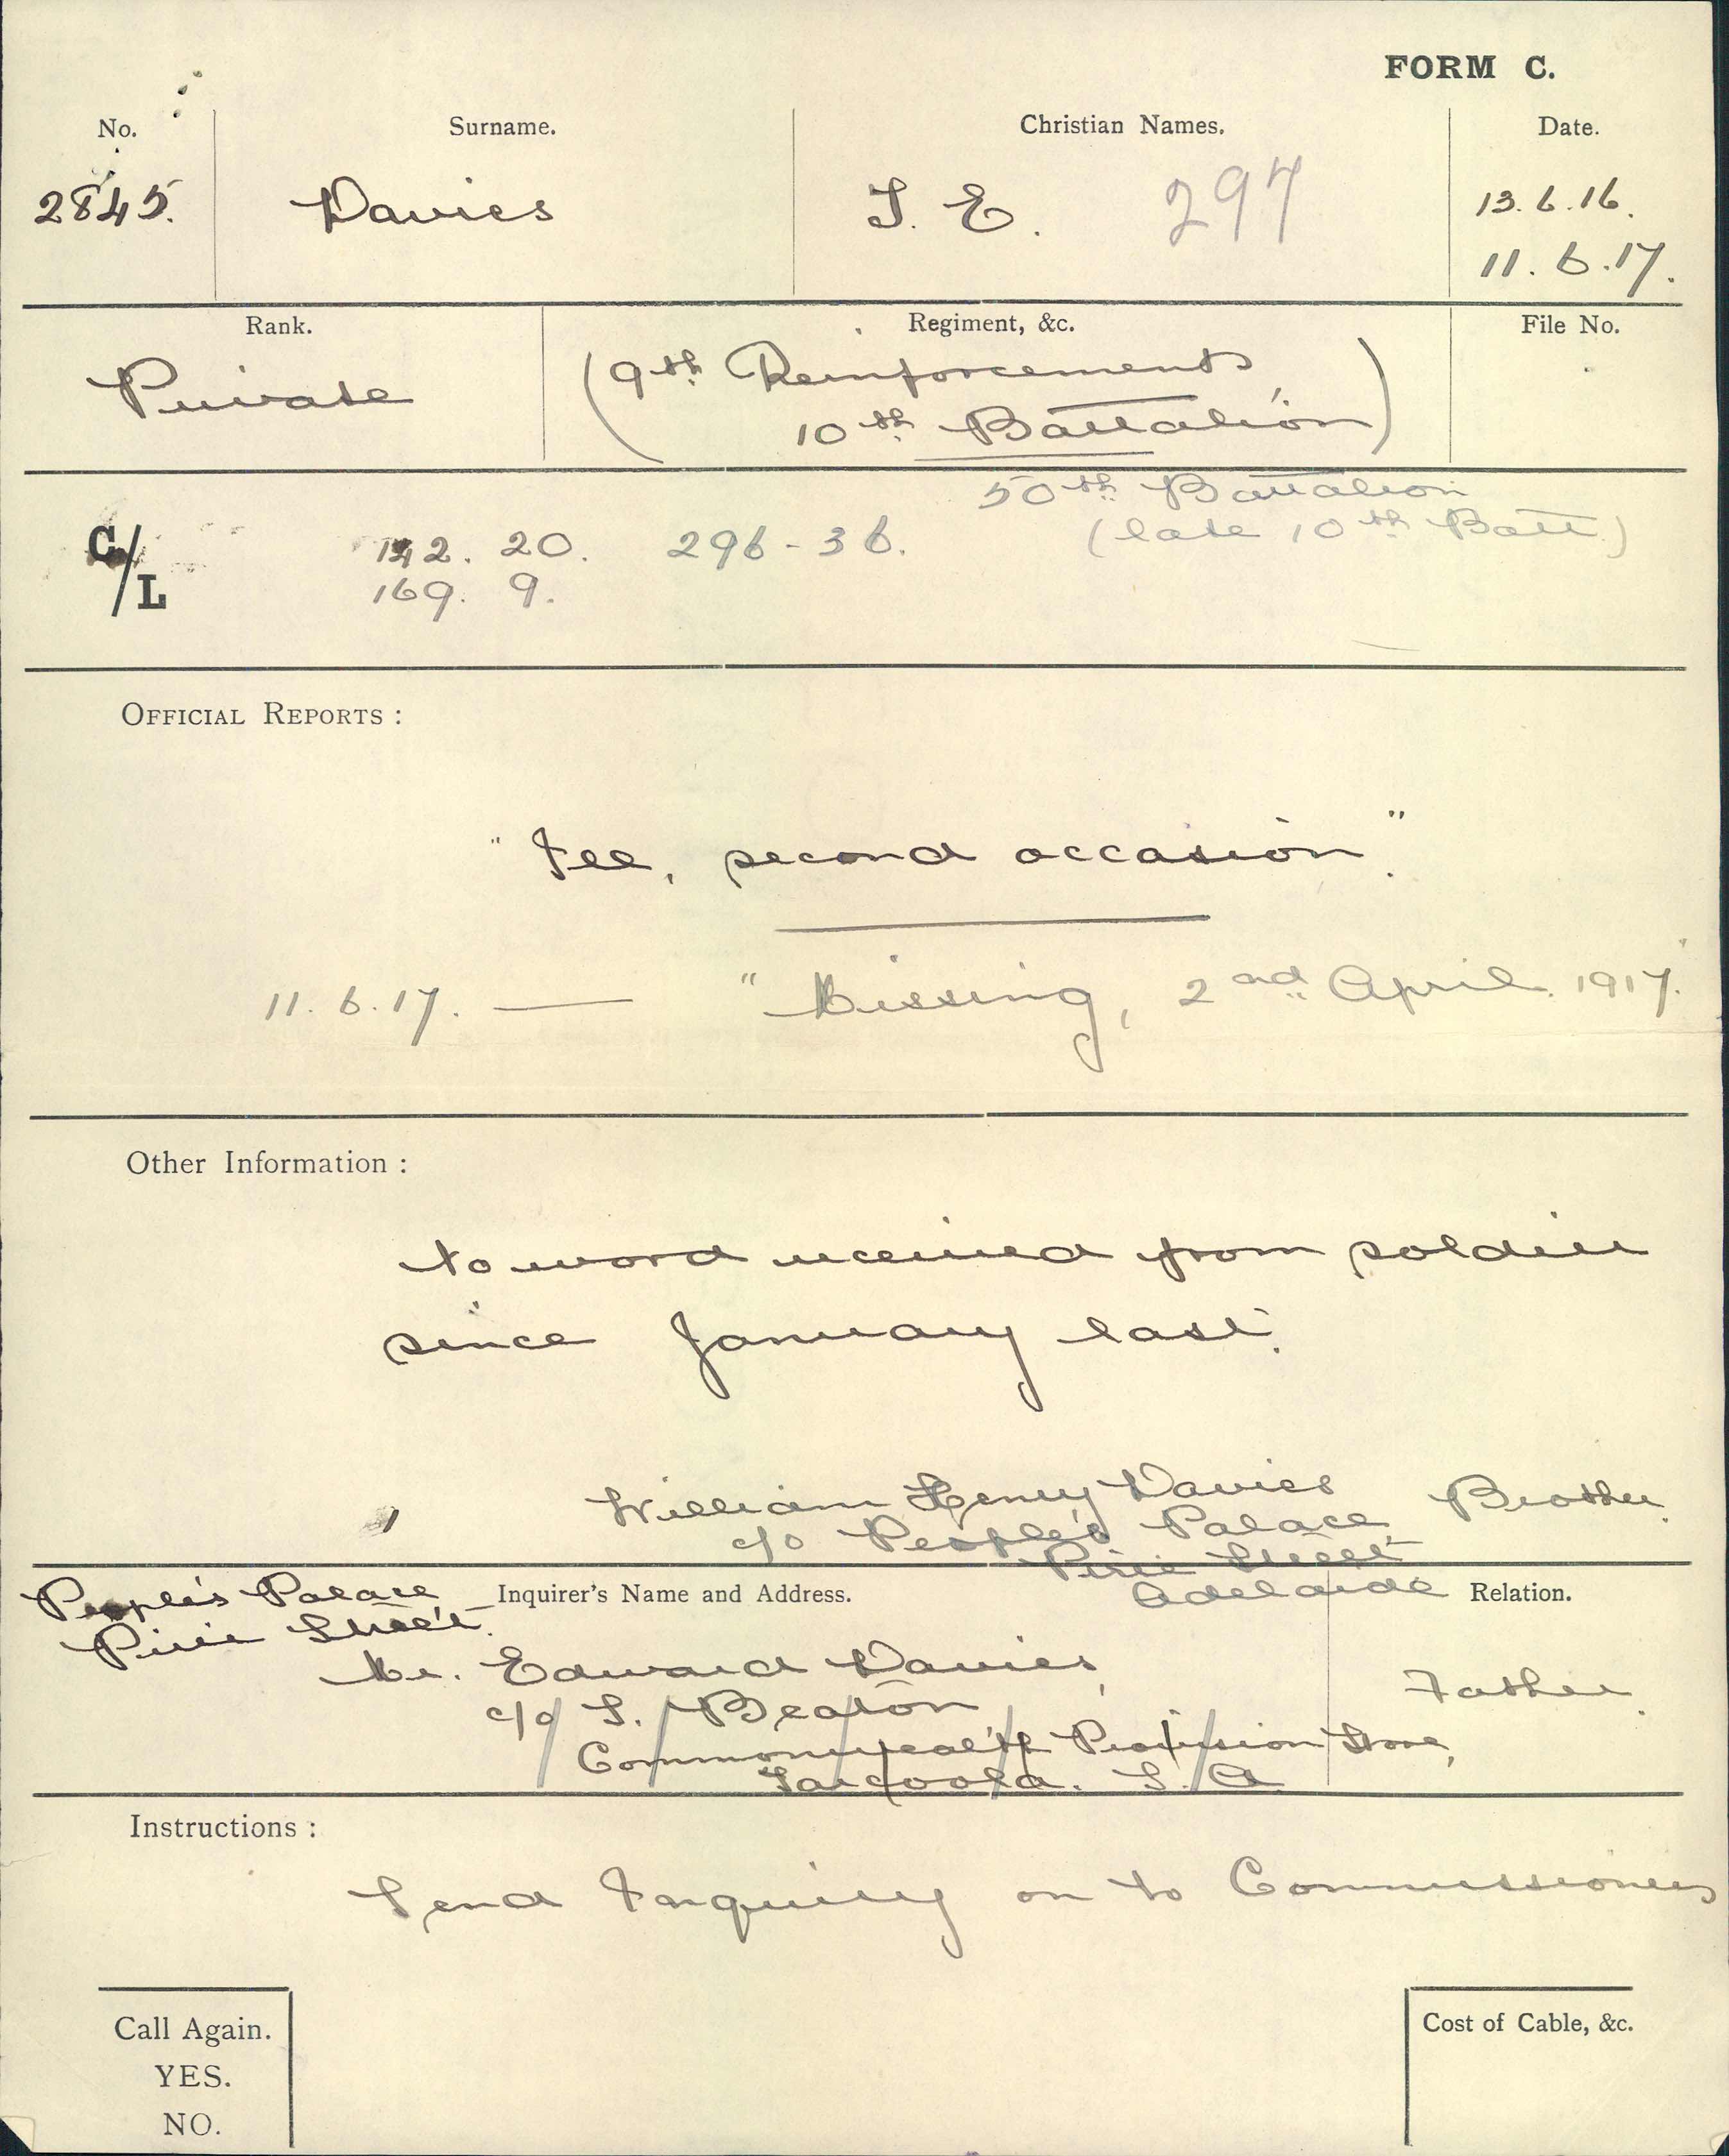 FORM C.
No. Surname. Christian Names. Date.
2845. Davies T. E. 297 13.6.16.
11.6.17.
Rank. Regiment, &c. File No.
Private (9th Reinforcements,
10th Battalion)
50th Battalion
(late 10th Batt.)
C/L 142. 20. 296-36.
169. 9.
OFFICIAL REPORTS :
"Ill, second occasion."
11.6.17. — "Missing, 2nd April. 1917."
Other Information :
No word received from soldier
since January last.
William Henry Davies Brother.
c/o People's Palace,
Pirie Street
Adelaide
People's Palace Inquirer's Name and Address. Relation.
Pirie Street.
Mr. Edward Davies, Father.
c/o S. Beaton
Commonwealth Provision Store,
Tarcoola. S. A
Instructions :
Send Inquiry on to Commissioners
Call Again. Cost of Cable, &c.
YES.
NO.